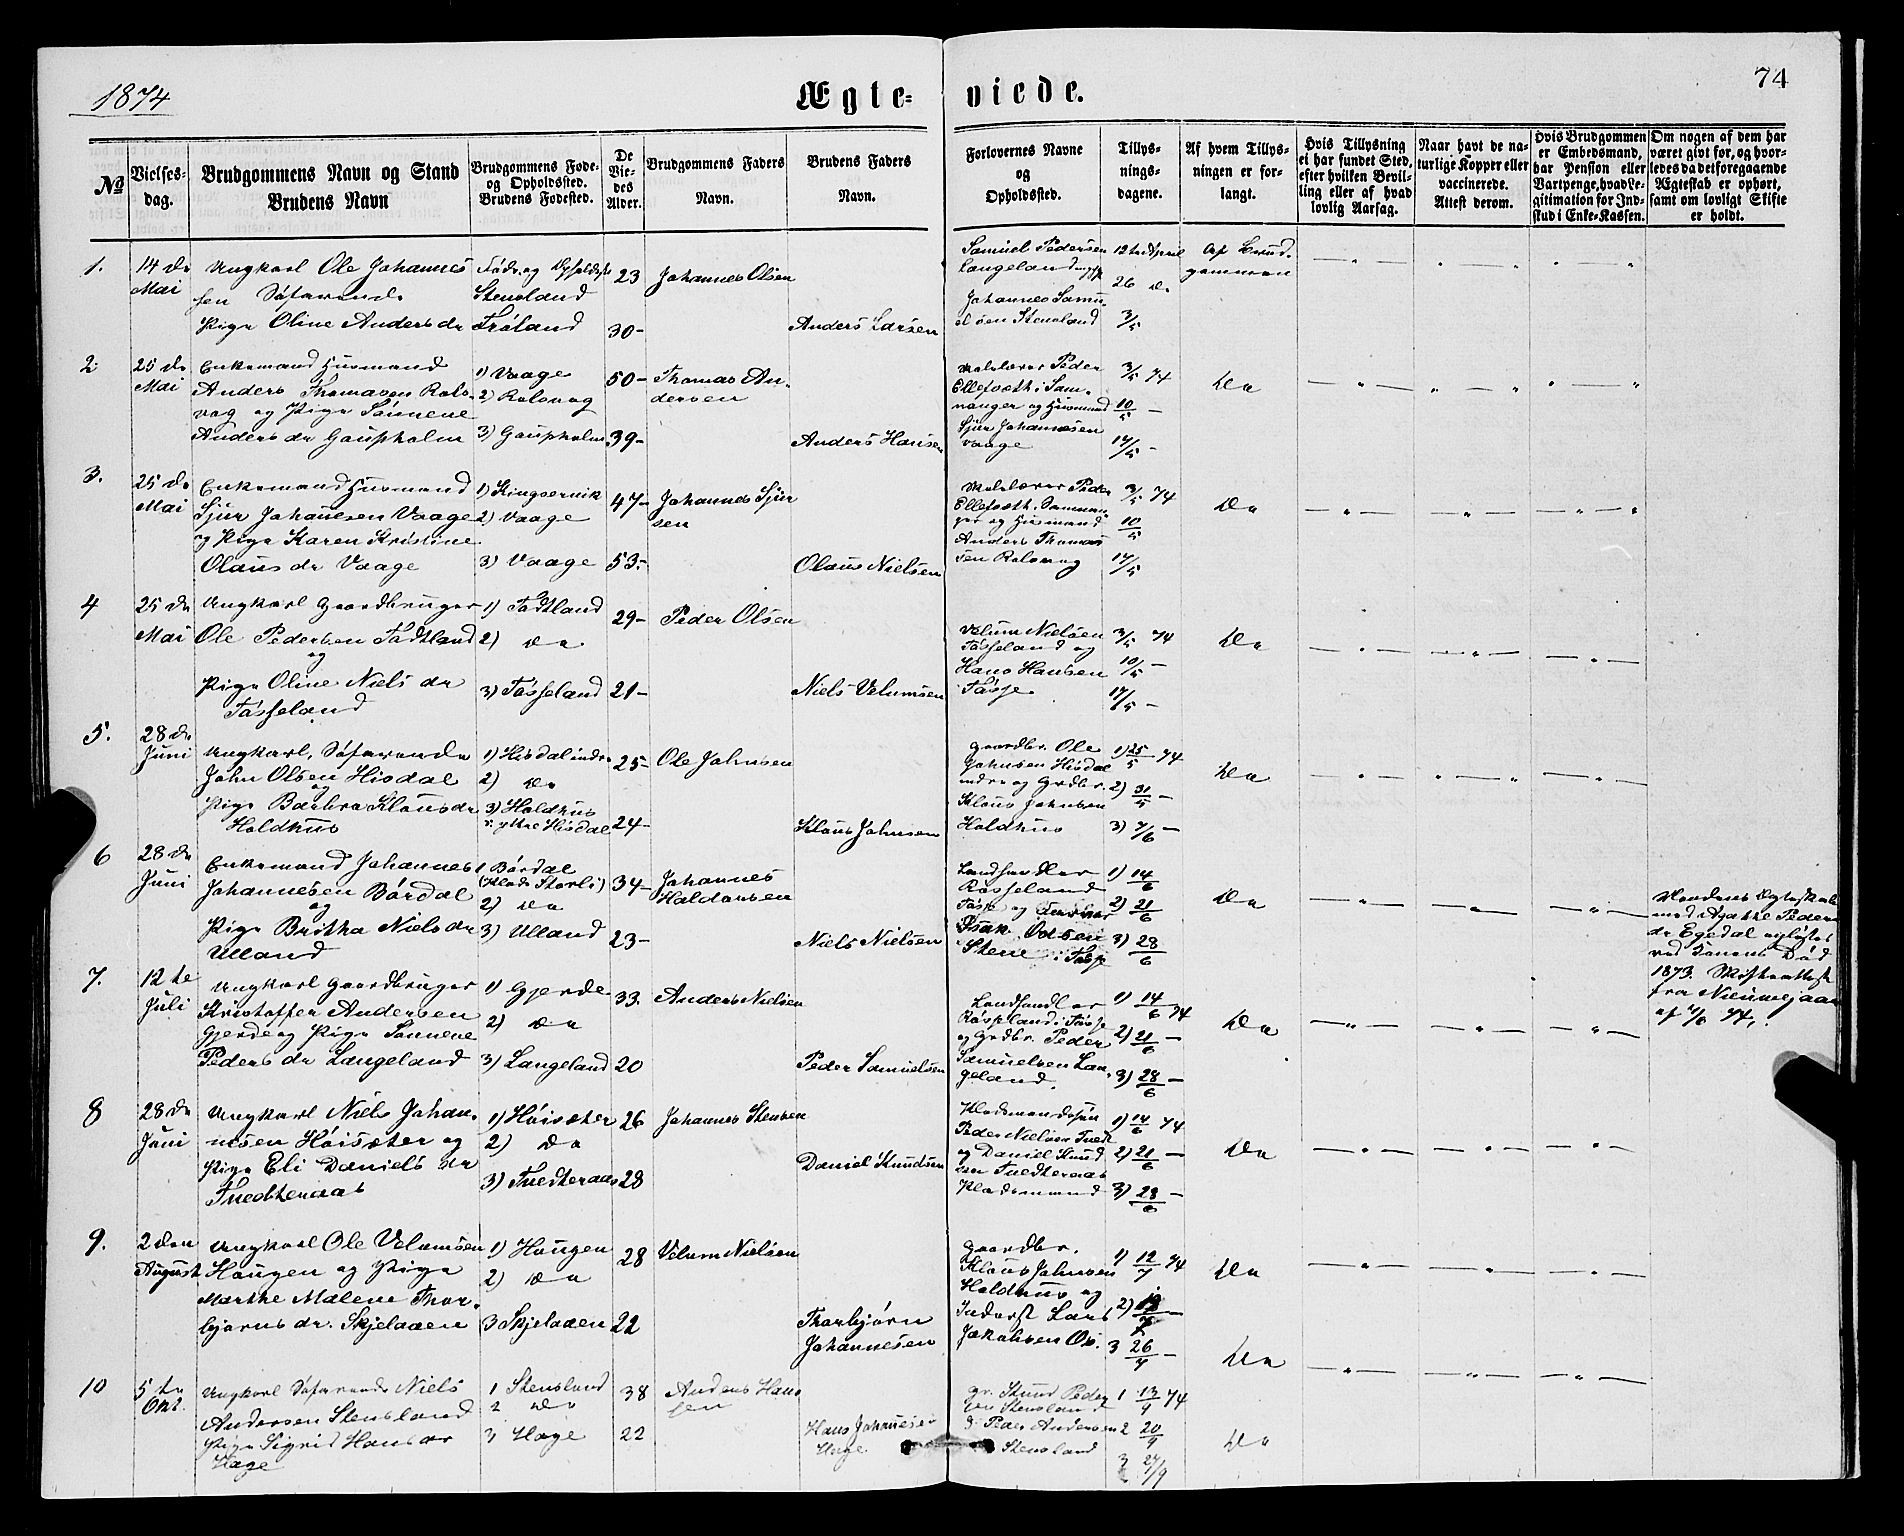 1874
Ægte-
viede.
74
No
Vielses-
dag.
Brudgommens Navn og Stand
Brudens Navn
Brudgommens Føde-
og Opholdssted.
Brudens Fødested.
De
Vie-
des
Alder.
Brudgommens Faders
Navn.
Brudens Faders
Navn.
Forlovernes Navne
og
Opholdssted.
Tillys-
nings-
dagene.
Af hvem Tillys-
ningen er for-
langt.
Hvis Tillysning
ei har fundet Sted,
efter hvilken Bevil-
ling eller af hvad
lovlig Aarsag.
Naar havt de na-
turlige Kopper eller
vaccinerede.
Attest derom.
Hvis Brudgommen
er Embedsmand,
har Pension eller
Vartpenge, hvad Le-
gitimation for Ind-
skud i Enke-Kassen.
Om nogen af dem har
været givt før, og hvor-
ledes da det foregaaende
Ægteskab er ophørt,
samt om lovligt Skifte
er holdt.
1.
14 de
Mai
Ungkarl Ole Johannes
sen Söfarende
Pige Oline Anders dr
Føde og
Stensland
Tröland
23
30-
Johannes Olsen
Anders Larsen
Samuel Pedersen
Langeland
Johannes Samu
el sen Stensland
12te April
26 de
3/5
Af Brud-
gommen
2
25 de
Mai
Enkemand Husmand
Anders Thomasen Rols-
vog og Pige Sönnene
Anders dr Gaupholm
1) Vaage
2) Rolsvog
3) Gaupholm
50-
39-
Thomas An-
dersen
Anders Hansen
Peder
Ellefsæth i Sam-
nanger og Husmand
Sjur Johannesen
Vaage
3/5 74
10/5 -
17/5 -
Do
3.
25 de
Mai
Enkemand Husmand
Sjur Johanesen Vaage
og Pige Karen Kristine
Olaus dr Vaage
1) Kingservik
2) Vaage
3) Vaage
47-
53-
Johannes Sjur
sen
Olaus Nielsen
Peder
Ellefsæth. Samnan
ger og Husmand
Anders Thomas
sen Rolsvog
3/5 74
10/5
17/5
Do
4
25 de
Mai
Ungkarl Gaardbruger
Ole Pedersen Tadtland
og
Pige Oline Niels dr
Tösseland
1) Tadtland
2) do
3) Tösseland
29-
21-
Peder Olsen
Niels Velumsen
Velum Nielsen
Tösseland og
Hans Hansen
Tösse
3/5 74
10/5 -
17/5 -
Do
5.
28 de
Juni
Ungkarl, Söfarende
John Olsen Hisdal
og
Pige Barbra Klaus dr
Holdhus
1) Hisdal indre
2) do
3) Holdhus
ytre Hisdal
25-
24-
Ole Johnsen
Klaus Johnsen
Gaardbr. Ole
Johnsen Hisdal
indre og Grdbr.
Klaus Johnsen
Holdhus
1) 25/5 74
2) 31/5 -
3) 7/6 -
Do
6
28 de
Juni
Enkemand Johannes
Johannesen Bördal
og
Pige Britha Niels dr
Ulland
1 Bördal
(Plads Storli)
2) do
3) Ulland
34-
23-
Johannes
Haldorsen
Niels Nielsen
Landhandler
Rösseland
Tösse og
Isak Olsen
Stene i Tösse
1) 14/6
2) 21/6
3) 28/6
Do
Mandens Ægteskab
med Agathe Peders
dr Egedal oplöstes
ved Konens Död
1873.
fra
af 74.
7.
12 te
Juli
Ungkarl Gaardbruger
Kristoffer Andersen
Gjerde og Pige Sönnene
Peders dr Langeland
1) Gjerde
2) do
3) Langeland
33.
20
Anders Nielsen
Peder Samuelsen
Landhandler
Rösseland i Tösse
og Grdbr. Peder
Samuelsen Lan-
geland.
1) 14/6 74
2) 21/6 -
3) 28/6 -
Do
8
28 de
Juni
Ungkarl Niels Johan-
nesen Höisæter og
Pige Eli Daniels dr
Tuedteraas
1) Höisæter
2) do
3) Tuedteraas
26
28
Johannes Stensen
Daniel Knudsen
Pladsmand
Peder Nielsen Tuedt
og Daniel Knud
sen Tuedteraas
Pladsmand
1) 14/6 74
2) 21/6 -
3) 28/6 -
Do
9.
2 den
August
Ungkarl Ole Velumsen
Haugen og Pige
Marthe Malene Thor-
bjørns dr. Skjelaaen
1) Haugen
2) do
3 Skjelaaen
28
22
Velum Nielsen
Thorbjørn
Johannesen
Gaardbr.
Klaus Johnsen
Holdhus og
Inderst Lars
Jakobsen Øi.
1) 12/7 74
2) 19/7 -
3 26/7 -
Do
Do
10
5 te
Okt.
Ungkarl Söfarende Niels
Andersen Stensland
Pige Sigrid Hans dr
Hage
1 Stensland
2 do
3 Hage
38
22
Anders Hans
sen
Hans Johanesen
Hage
Gr. Knud Peder
sen Stensland
Peder Andersen
Stensland
1 13/9 74
2 20/9
3 27/9
Do